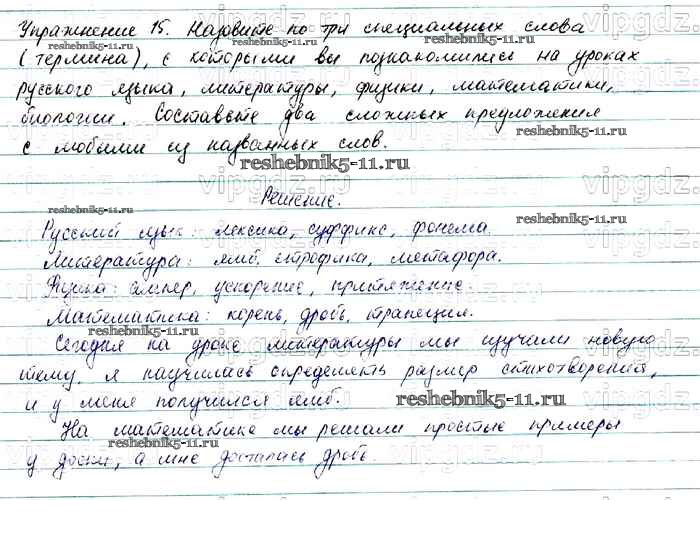 Упражнение 15. Назовите по три специальных слова
(термина), с которыми вы познакомились на уроках
русского языка, литературы, физики, математики,
биологии. Составьте два сложных предложения
с любыми из названных слов.
Решение.
Русский язык: лексика, суффикс, фонема.
Литература: ямб, строфика, метафора.
Физика: ампер, ускорение, притяжение.
Математика: корень, дробь, трапеция.
Сегодня на уроке литературы мы изучали новую
тему, я научилась определять размер стихотворений,
и у меня получился ямб.
На математике мы решали простые примеры
у доски, а мне досталась дробь.
reshebnik5-11.ru
vipgdz.ru